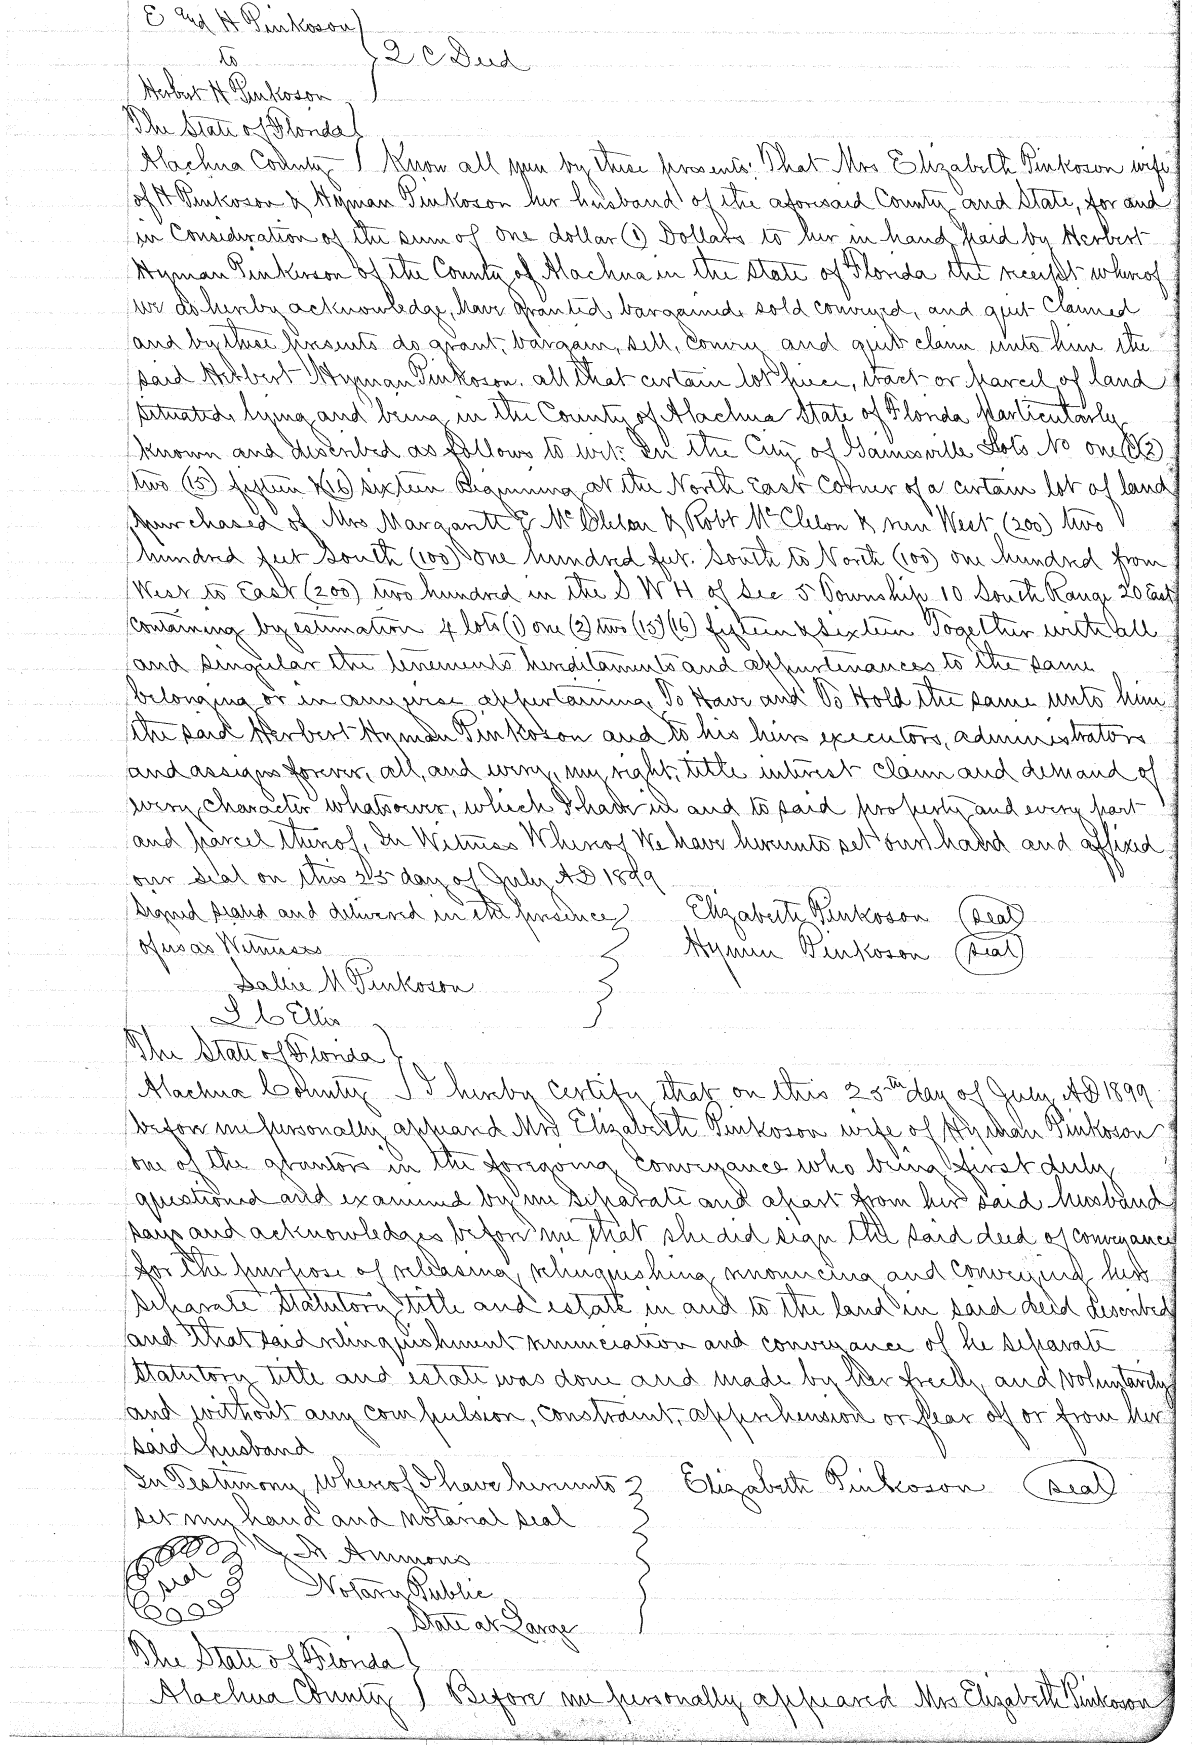 E and H Pinkoson
to
2 C Deed
Herbert H Pinkoson
The State of Florida
Alachua County Know all men by these presents: That Mrs Elizabeth Pinkoson wife
of H Pinkoson & Hyman Pinkoson her husband of the aforesaid County and State, for and
in Consideration of the sum of one dollar (1) Dollars to her in hand paid by Herbert
Hyman Pinkerson of the County of Alachua in the State of Florida the receipt whereof
we do hereby acknowledge, have granted, bargained, sold conveyed, and quit claimed
and by these presents do grant, bargain, sell, convey and quit claim unto him the
said Herbert Hyman Pinkoson. all that certain lot piece, tract or parcel of land
situated, lying and being in the County of Alachua State of Florida Particularly
known and described as follows to wit: In the City of Gainesville Lots No one (1) (2)
two (15) fifteen &(16) sixteen Beginning at the North East Corner of a certain lot of land
purchased of Mrs Margarett E McClelon & Robt McClelon & run West (200) two
hundred feet South (100) one hundred feet. South to North (100) one hundred from
West to East (200) two hundred in the S W H of Sec 5 Township 10 South Range 20 East
Containing by estimation 4 lots (1) one (2) two (15) (16) fifteen & sixteen Together with all
and singular the tenements hereditaments and appurtenances to the same
belonging or in anywise appertaining, To Have and To Hold the same unto him
the said Herbert Hyman Pinkoson and to his heirs executors, administrators
and assigns forever, all, and every, my right, title interest claim and demand of
every, character whatsoever, which I have in and to said property and every part
and parcel thereof, In Witness Whereof We have hereunto set our hand and affixed
our seal on this 25 day of July AD 1899
Signed sealed and delivered in the presence Elizabeth Pinkoson (seal)
of us as Witnesses Hyman Pinkoson (seal)
Sallie M Pinkoson
L C Ellis
The State of Florida
Alachua County I hereby certify that on this 25th day of July AD 1899
before me personally appeared Mrs Elizabeth Pinkoson wife of Hyman Pinkoson
one of the grantors in the foregoing conveyance who being first duly
questioned and examined by me separate and apart from her said husband
says and acknowledges before me that she did sign the said deed of conveyance
for the purpose of releasing, relinquishing renouncing and conveying her
separate statutory title and estate in and to the land in said deed described
and that said relinquishment renunciation and conveyance of he separate
statutory title and estate was done and made by her freely and voluntarily
and without any compulsion, constraint, apprehension or fear of or from her
said husband
In Testimony whereof I have hereunto Elizabeth Pinkoson (seal)
set my hand and notarial seal
seal H Ammons
Notary Public
State at Large
The State of Florida
Alachua County Before me personally appeared Mrs Elizabeth Pinkoson